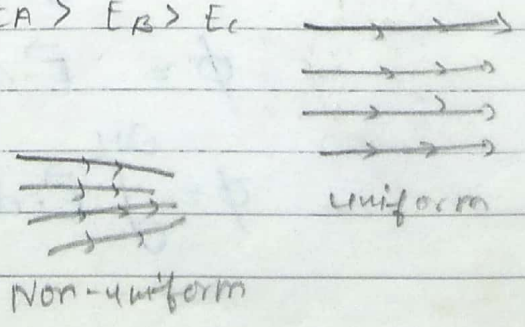 EA > EB > EC
uniform
Non-uniform